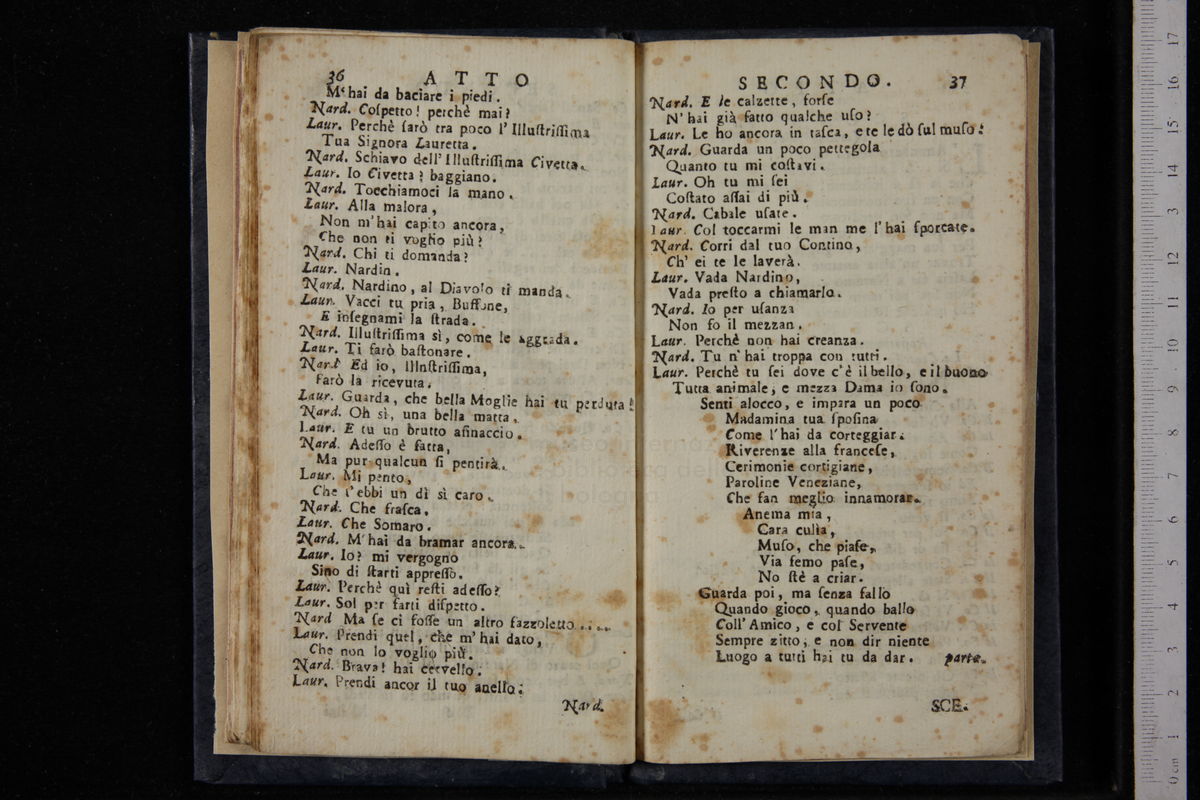 36 ATTO
M'hai da baciare i piedi.
Nard. Coſpetto! perchè mai?
Laur. Perchè ſarò tra poco l'Illuſtriſſima
Tua Signora Lauretta.
Nard. Schiavo dell'Illuſtriſſima Civetta.
Laur. Io Civetta? baggiano.
Nard. Tocchiamoci la mano.
Laur. Alla malora,
Non m'hai capito ancora,
Che non ti voglio più?
Nard. Chi ti domanda?
Laur. Nardin.
Nard. Nardino, al Diavolo ti manda.
Laur. Vacci tu pria, Buffone,
E inſegnami la ſtrada.
Nard. Illuſtriſſima sì, come le aggrada.
Laur. Ti farò baſtonare.
Nard Ed io, Illnſtriſſima,
Farò la ricevuta.
Laur. Guarda, che bella Moglie hai tu perduta!
Nard. Oh sì, una bella matta.
Laur. E tu un brutto aſinaccio.
Nard. Adeſſo è fatta,
Ma pur qualcun ſi pentirà.
Laur. Mi pento,
Che t'ebbi un dì sì caro.
Nard. Che fraſca.
Laur. Che Somaro.
Nard. M'hai da bramar ancora.
Laur. Io? mi vergogno
Sino di ſtarti appreſſo.
Laur. Perchè quì reſti adeſſo?
Laur. Sol per farti diſpetto.
Nard Ma ſe ci foſſe un altro fazzoletto ....
Laur. Prendi quel, che m'hai dato,
Che non lo voglio più.
Nard. Brava! hai cervello.
Laur. Prendi ancor il tuo anello.
Nard.
SECONDO. 37
Nard. E le calzette, forſe
N'hai già fatto qualche uſo?
Laur. Le ho ancora in taſca, e te le dò ſul muſo.
Nard. Guarda un poco pettegola
Quanto tu mi coſtavi.
Laur. Oh tu mi ſei
Coſtato aſſai di più.
Nard. Cabale uſate.
Laur. Col toccarmi le man me l'hai ſporcate.
Nard. Corri dal tuo Contino,
Ch' ei te le laverà.
Laur. Vada Nardino,
Vada preſto a chiamarlo.
Nard. Io per uſanza
Non fo il mezzan.
Laur. Perchè non hai creanza.
Nard. Tu n'hai troppa con tutti.
Laur. Perchè tu ſei dove c'è il bello, e il buono
Tutta animale, e mezza Dama io ſono.
Senti alocco, e impara un poco
Madamina tua ſpoſina
Come l'hai da corteggiar.
Riverenze alla franceſe,
Cerimonie cortigiane,
Paroline Veneziane,
Che fan meglio innamorar.
Anema mia,
Cara culìa,
Muſo, che piaſe,
Via femo paſe,
No ſtè a criar.
Guarda poi, ma ſenza fallo
Quando gioco, quando ballo
Coll'Amico, e col Servente
Sempre zitto, e non dir niente
Luogo a tutti hai tu da dar. parte.
SCE.